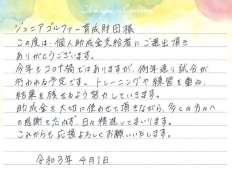 ジュニアゴルファー育成財団様
この度は、個人助成金支給者にご選出頂き
ありがとうございます。
今年もコロナ禍ではありますが、例年通り試合が
行われる予定です。トレーニングや練習を重ね、
結果を残せるよう努力していきます。
助成金を大切に使わせて頂きながら、多くの方々へ
の感謝を忘れず、日々精進してまいります。
これからも応援よろしくお願いいたします。
令和3年 4月1日